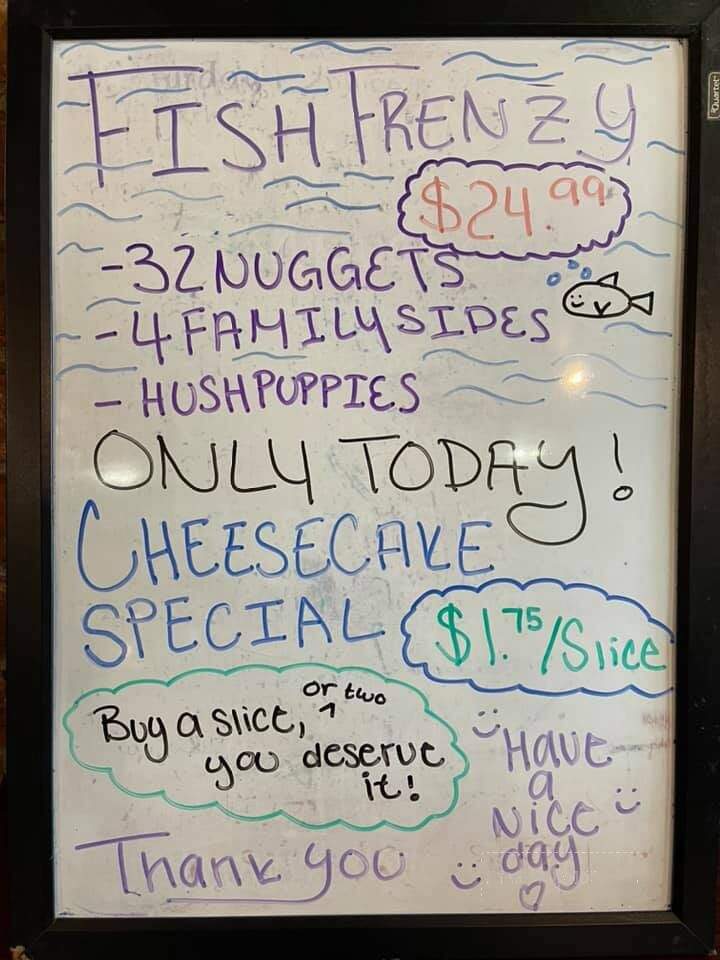 Quartet
FISH FRENZY
$24.99
-32 NUGGETS
-4 FAMILY SIDES
- HUSHPUPPIES
ONLY TODAY!
CHEESECAKE
SPECIAL
$1.75/Slice
or two
Buy a slice, ^
you deserve
it!
Have
a
Nice
day
Thank you